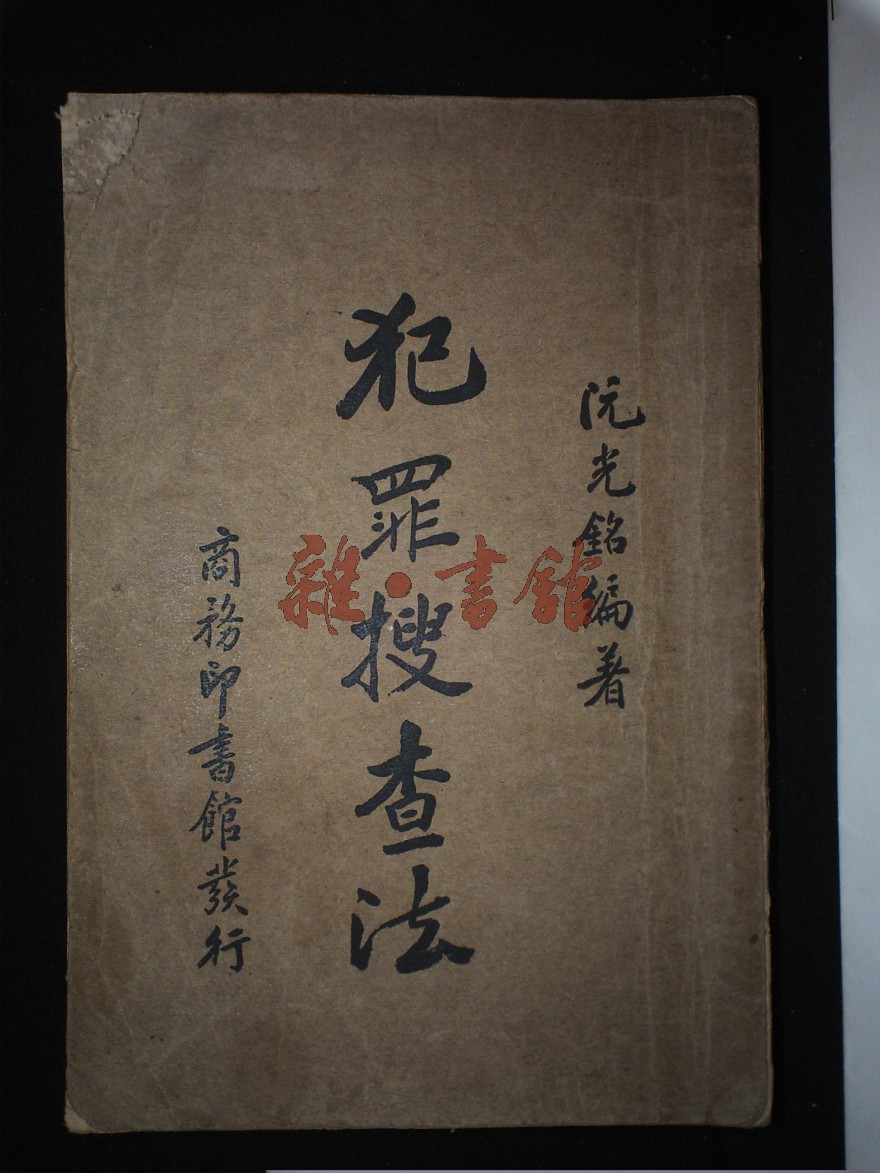 阮光銘編著
犯罪搜查法
商務印書館發行
雜·書館